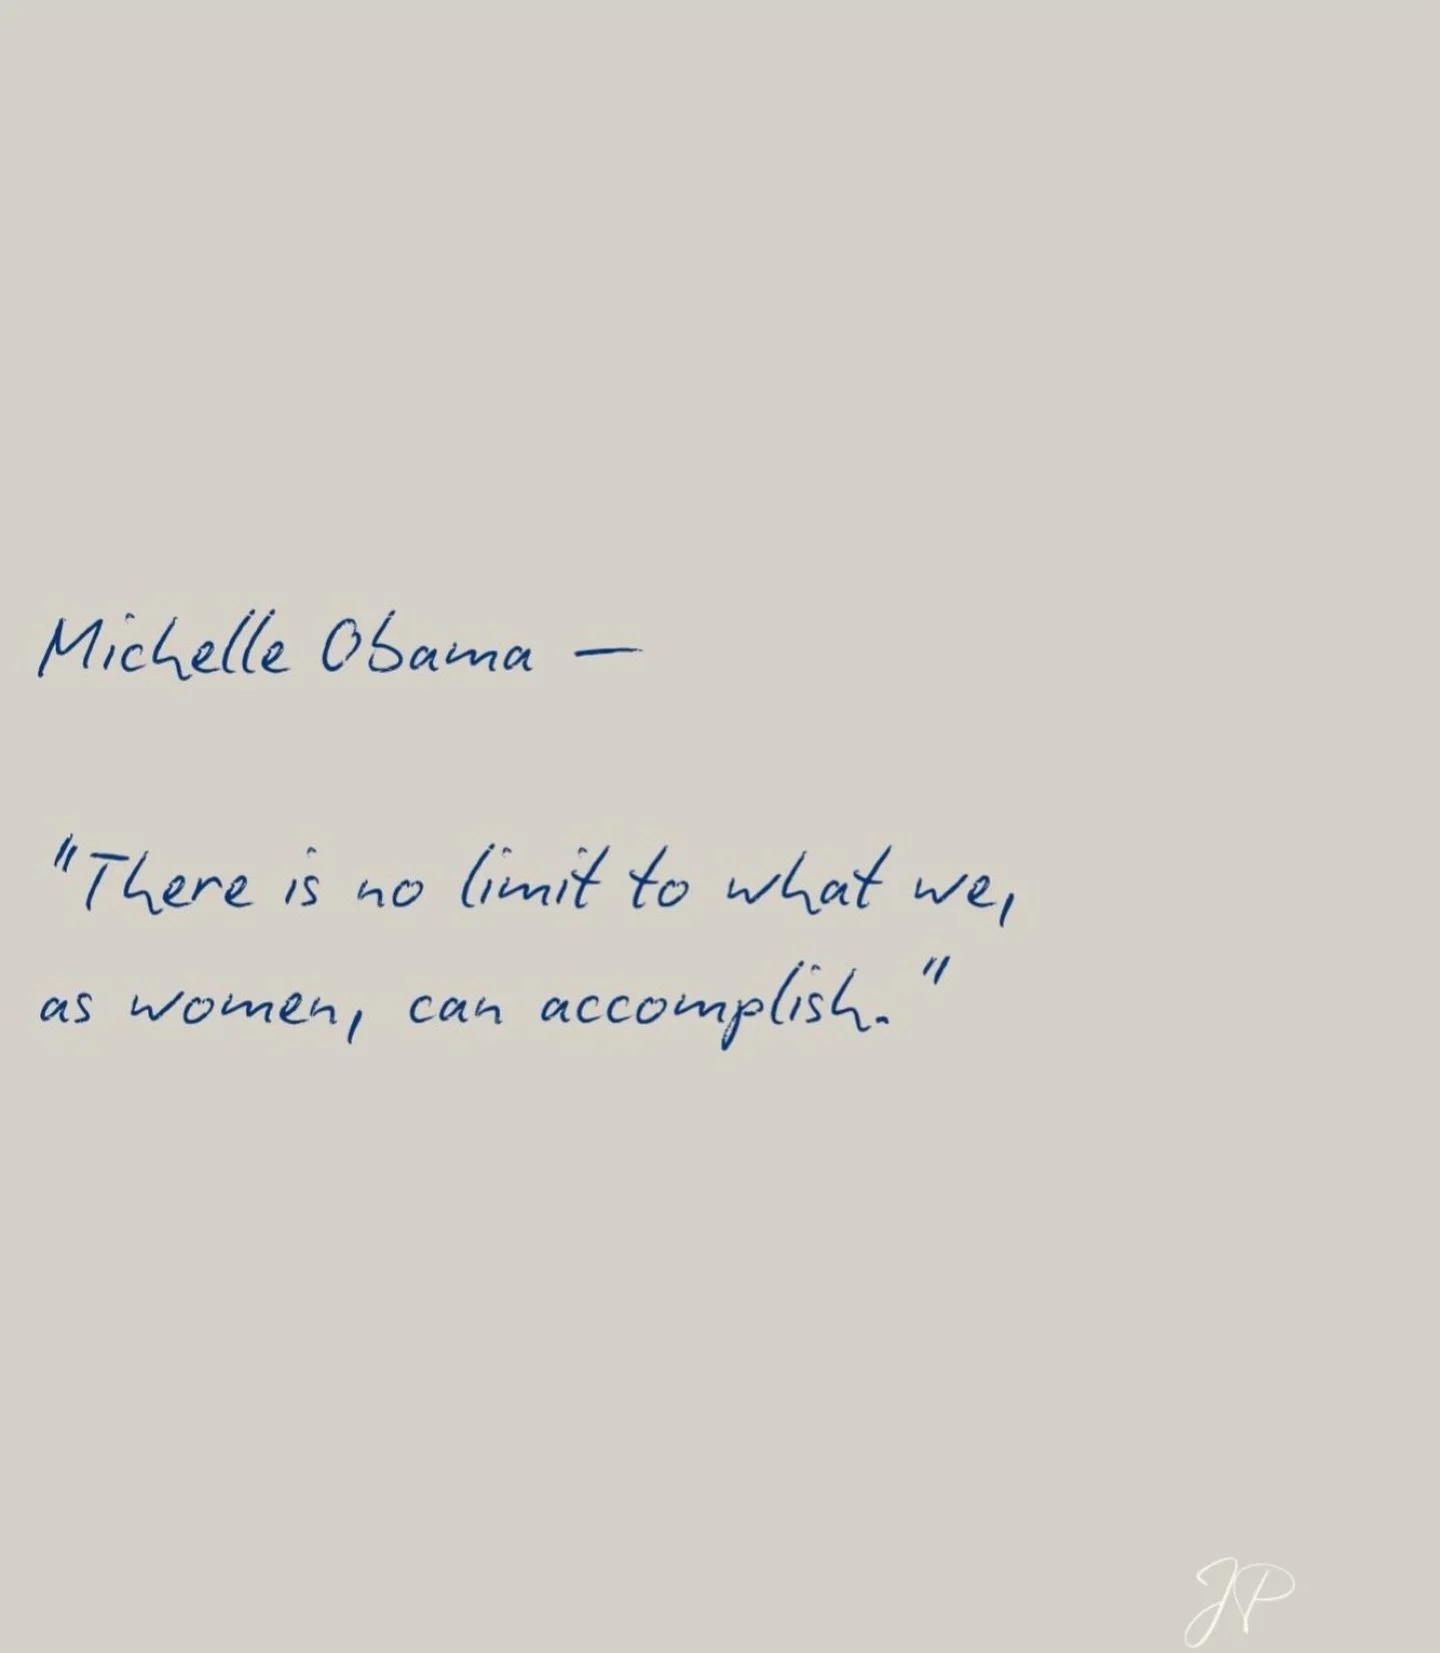 Michelle Obama —
"There is no limit to what we,
as women, can accomplish."
JP